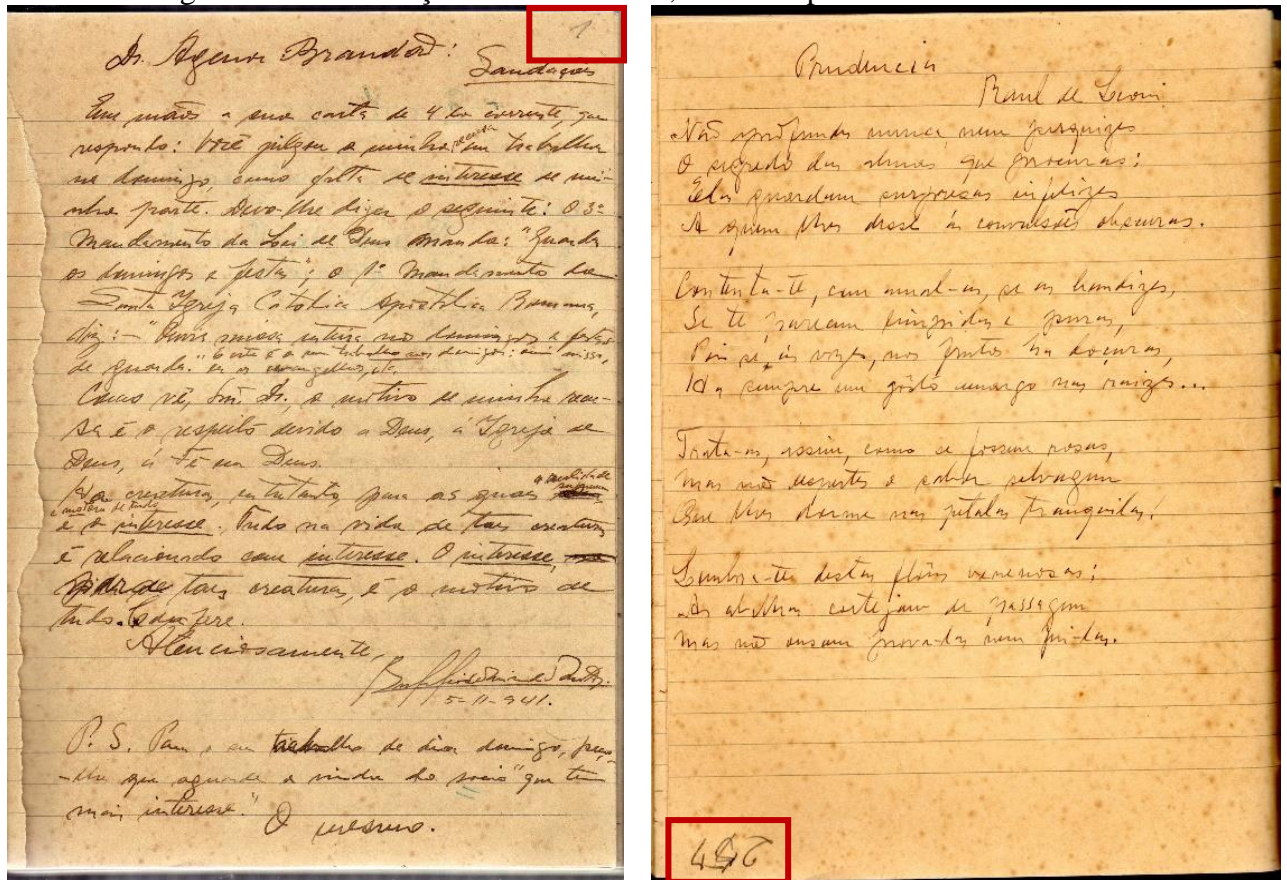 1
Dr. Agenor Brandão:
Saudações
Em mãos a sua carta de 4 do corrente, que
respondo: Você julgou a minha recusa em trabalhar
no domingo, como falta de interesse de mi-
nha parte. Devo-lhe dizer o seguinte: O 3º
Mandamento da Lei de Deus manda: "Guardar
os domingos e festas"; o 1º Mandamento da
Santa Igreja Católica Apostólica Romana,
diz: – "Ouvir missa inteira nos domingos e festas
de guarda." E este é o meu trabalho nos domingos: ouvir missa,
ler os evangelhos, etc.
Como vê, Snr. Dr., o motivo de minha recu-
sa é o respeito devido a Deus, á Igreja de
Deus, á Fé em Deus.
Ha creaturas, entretanto, para as quais
a mola de tudo
é o interesse. Tudo na vida de tais creaturas
é relacionado com interesse. O interesse,
tais creaturas, é o motivo de
tudo.
Atenciosamente,
5-11-941.
P. S. Para o seu trabalho de dia domingo, peço-
-lhe que aguarde a vinda do socio "que tem
mais interesse."
O mesmo.
Prudencia
Raul de Leoni
Não aprofundes nunca, nem pesquizes
O segredo das almas que procuras:
Elas guardam surpresas infelizes
A quem lhes desce ás convulsões obscuras.
Contenta-te, com amal-as, se as bendizes,
Se te parecem limpidas e puras,
Pois se, ás vezes, nos frutos ha doçuras,
Ha sempre um gôsto amargo nas raizes...
Trata-as, assim, como se fossem rosas,
Mas não despertes o sabor selvagem
Que lhes dorme nas petalas tranquilas!
Lembra-te destas flôres venenosas:
As abelhas cortejam de passagem
Mas não ousam prova-las nem feri-las.